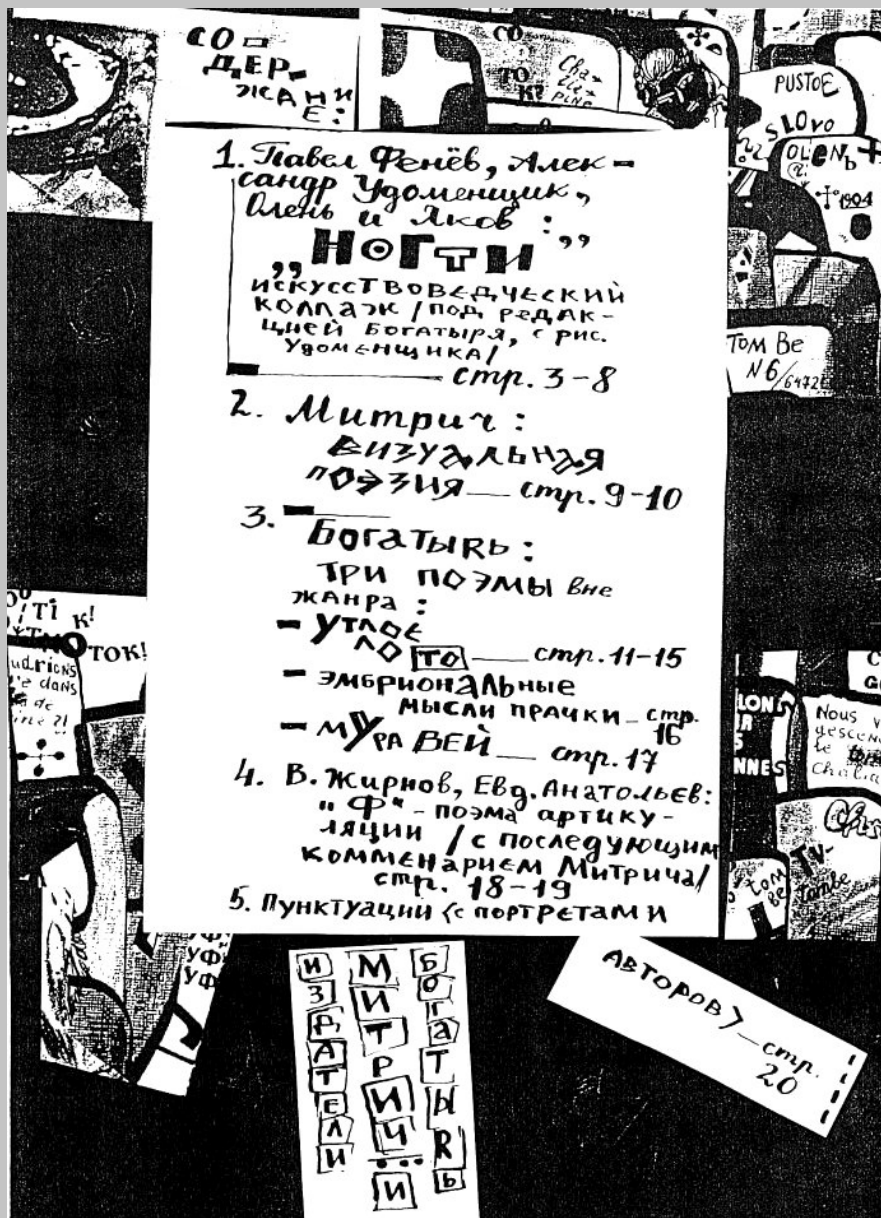 СО=
ДЕР-
ЖАНИ
Е:
СО
ТО
К?
PUSTOE
SLOVO
OLENЬ
1904
TOM BE
N6/6472
1. Павел Фенёв, Алек-
сандр Удоменщик,
Олень и Яков:
„НОГТИ”
ИСКУССТВОВЕДЧЕСКИЙ
КОЛЛАЖ /ПОД РЕДАК-
ЦИЕЙ БОГАТЫРЯ, с РИС.
УДОМЕНЩИКА/
стр. 3-8
2. Митрич:
ВИЗУАЛЬНАЯ
ПОЭЗИЯ — стр. 9-10
3. БОГАТЫRЬ:
ТРИ ПОЭМЫ вне
ЖАНРА:
- УТЛОЕ
ЛО ТО — стр. 11-15
- ЭМБРИОНАЛЬНЫЕ
МЫСЛИ ПРАЧКИ — стр.
16
- МУРАВЕЙ — стр. 17
4. В. Жирнов, Евд. Анатольев:
"Ф" - ПОЭМА АРТИКУ-
ЛЯЦИИ /С ПОСЛЕДУЮЩИМ
КОММЕНАРИЕМ Митрича/
стр. 18-19
5. Пунктуации <с портретами
АВТОРОВ> — стр.
20
TI К!
ТОК!
Nous
tom
be
Tu-
tombe
УФ
УФ
ИЗДАТЕЛИ
МИТРИЧ И
БОГАТЫRЬ